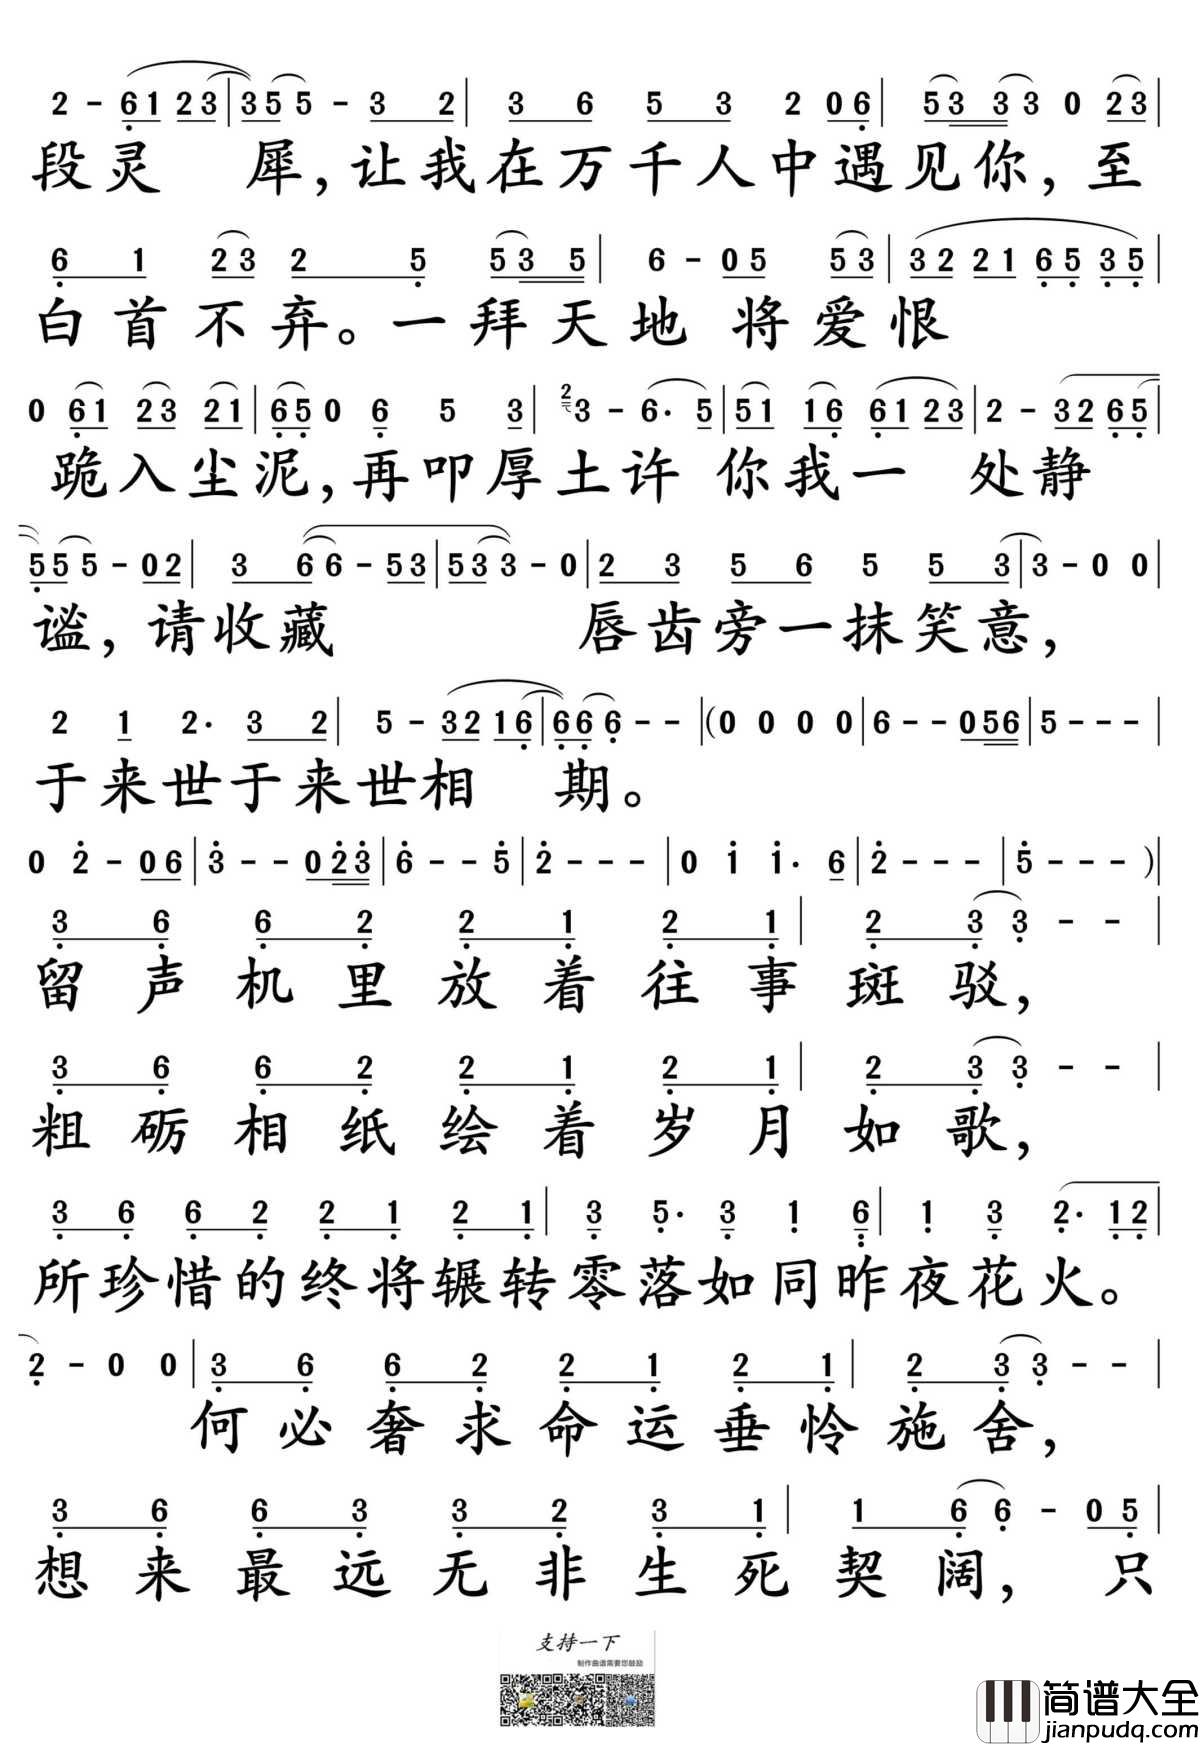 2 - 6 1 2 3 | 3 5 5 - 3 2 | 3 6 5 3 2 0 6 | 5 3 3 3 0 2 3 |
段灵 犀,让我在万千人中遇见你,至
6 1 2 3 2 5 5 3 5 | 6 - 0 5 5 3 | 3 2 2 1 6 5 3 5 |
白首不弃。一拜天地 将爱恨
0 6 1 2 3 2 1 | 6 5 0 6 5 3 | 2 3 - 6 . 5 | 5 1 1 6 6 1 2 3 | 2 - 3 2 6 5 |
跪入尘泥,再叩厚土许 你我一 处静
5 5 5 - 0 2 | 3 6 6 - 5 3 | 5 3 3 - 0 | 2 3 5 6 5 5 3 | 3 - 0 0 |
谧,请收藏 唇齿旁一抹笑意,
2 1 2 . 3 2 | 5 - 3 2 1 6 | 6 6 6 - - | ( 0 0 0 0 | 6 - - 0 5 6 | 5 - - - |
于来世于来世相 期。
0 2 - 0 6 | 3 - - 0 2 3 | 6 - - 5 | 2 - - - | 0 1 1 . 6 | 2 - - - | 5 - - - ) |
3 6 6 2 2 1 2 1 | 2 3 3 - - |
留声机里放着往事斑驳,
3 6 6 2 2 1 2 1 | 2 3 3 - - |
粗砺相纸绘着岁月如歌,
3 6 6 2 2 1 2 1 | 3 5 . 3 1 6 | 1 3 2 . 1 2 |
所珍惜的终将辗转零落如同昨夜花火。
2 - 0 0 | 3 6 6 2 2 1 2 1 | 2 3 3 - - |
何必奢求命运垂怜施舍,
3 6 6 3 3 2 3 1 | 1 6 6 - 0 5 |
想来最远无非生死契阔,只
支持一下
制作曲谱需要您鼓励
简谱大全
jianpudq.com